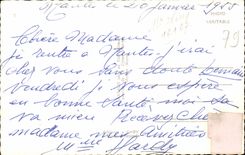 le 20 janvier 19
Chère Madame
je rentre à Nantes j'irai
chez vous sans doute demain
vendredi je vous espère
en bonne santé moi sa
va mieux Recevez Chère
madame mes Amitiés
Mme Hardy
79